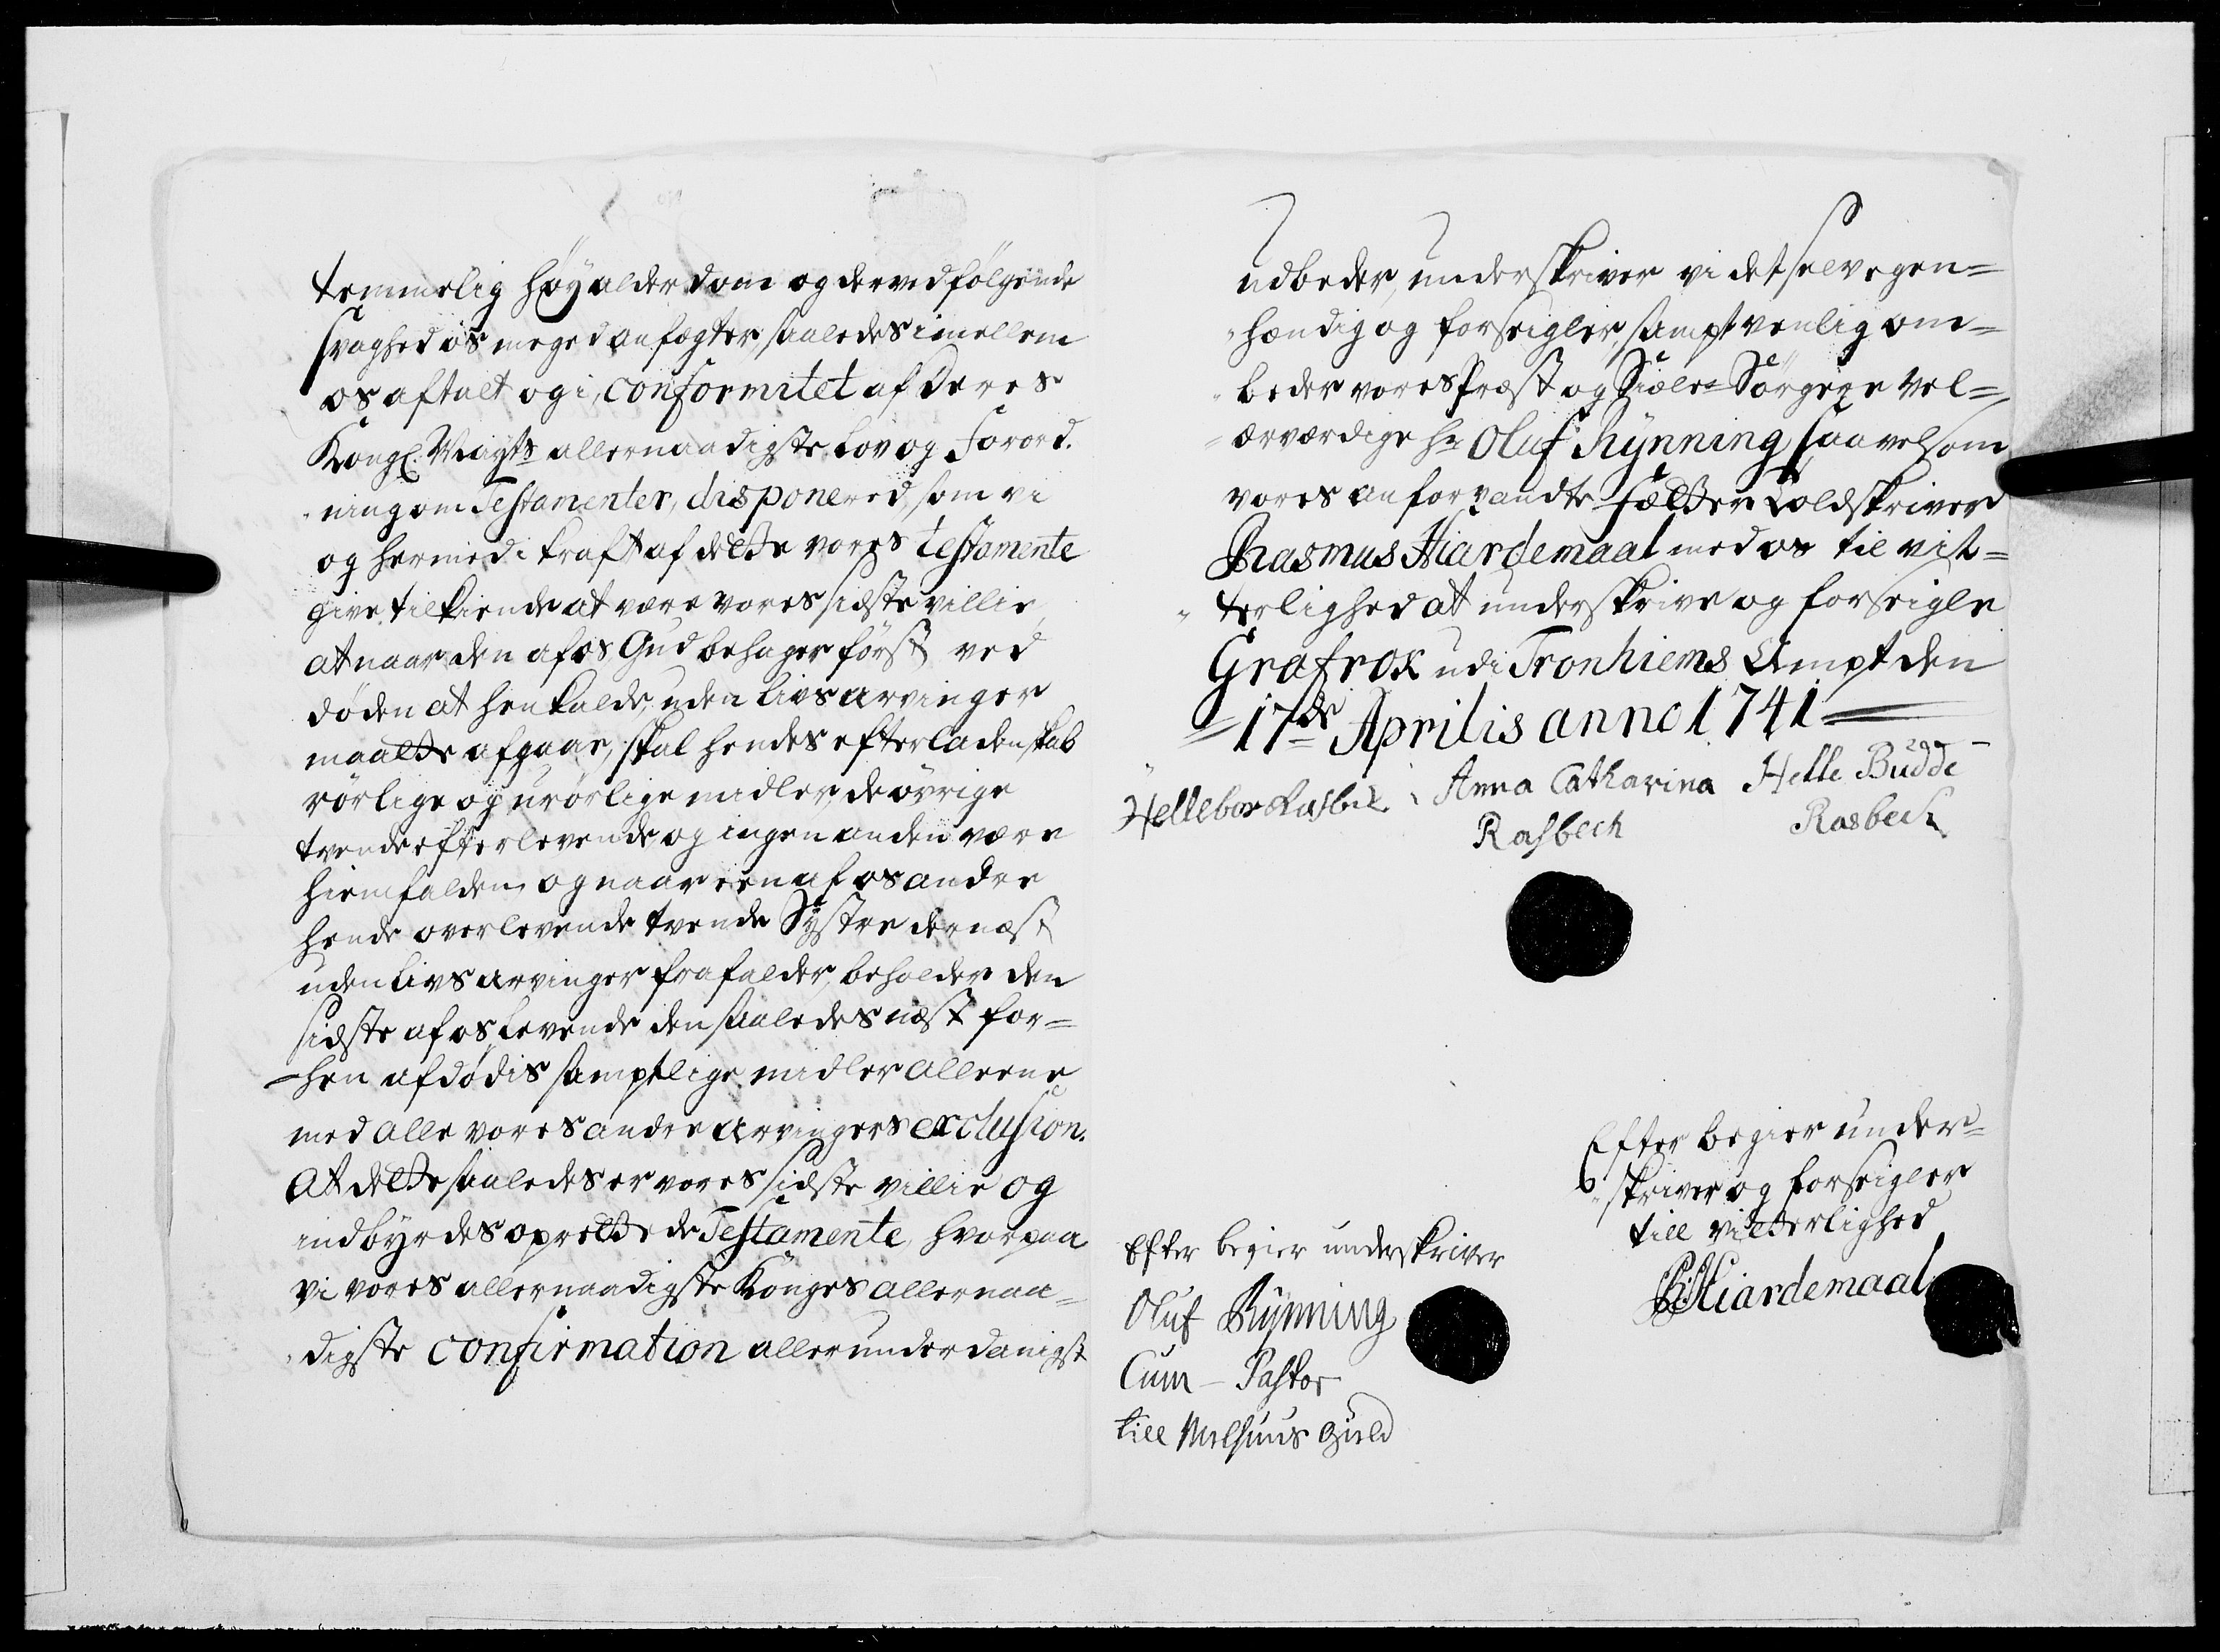 temmelig høy alderdom og derved følgende
svaghed os meged anfegter, saaledes imellem
os aftalt og i, conformitet af Deres
Kongl. Mayts allernaadigste Lov og Forord.
ning om Testamenter, disponered, som vi
og hermed i kraft af dette vores testamente
give tilkiende at være vores sidste villie,
at naar den af os Gud behager først ved
døden at henkalde, uden livsarvinger
maatte afgaae, skal hendes efterladenskab
rørlige og urørlige midler, de øvrige
tvende efterlevende, og ingen anden være
hiemfalden, og naar een af os andre
hende overlevende tvende Systre dernæst
uden livsarvinger frafalder, beholder den
sidste af os Levende den saaledes næst for=
=hen afdødis samptlige midler alleene
med alle vores andre arvingers exclusion.
At dette saaledes er vores sidste villie og
indbyrdes oprettede Testamente, hvorpaa
vi vores allernaadigste Konges allernaa=
digste confirmation allerunderdanigst
udbeder, underskriver vi det selv egen=
hændig og forseigler, sampt venlig om=
beder vores Præst og Siæle=Sørgere Vel=
=ærværdige Hr Oluf Rynning saavelsom
vores anforvandte Fætter Toldskriver
Rasmus Hiardemaal med os til vit=
terlighed at underskrive og forseigle
Grafrok udi Tronhiems Ampt den
17de Aprilis anno 1741
Hellebor Rasbech Anna Catharina Helle Budde
Rasbech Rasbech
Efter begier under=
skriver og forseigler
till vitterlighed
R: Hiardemaal
Efter begier underskriver
Oluf Rynning
Cum - Pastor
till Melhuus Gield